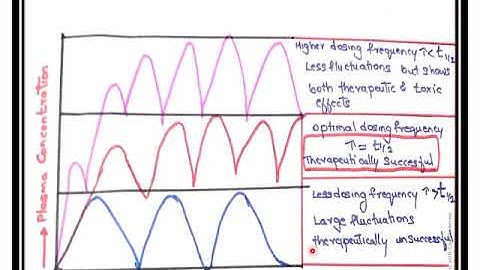 Plasma Concentration
Higher dosing frequency τ < t1/2
Less fluctuations but shows
both therapeutic & toxic
effects
optimal dosing frequency
τ = t1/2
Therapeutically Succesful
Less dosing frequency τ > t1/2
Large fluctuations
therapeutically unsuccessful